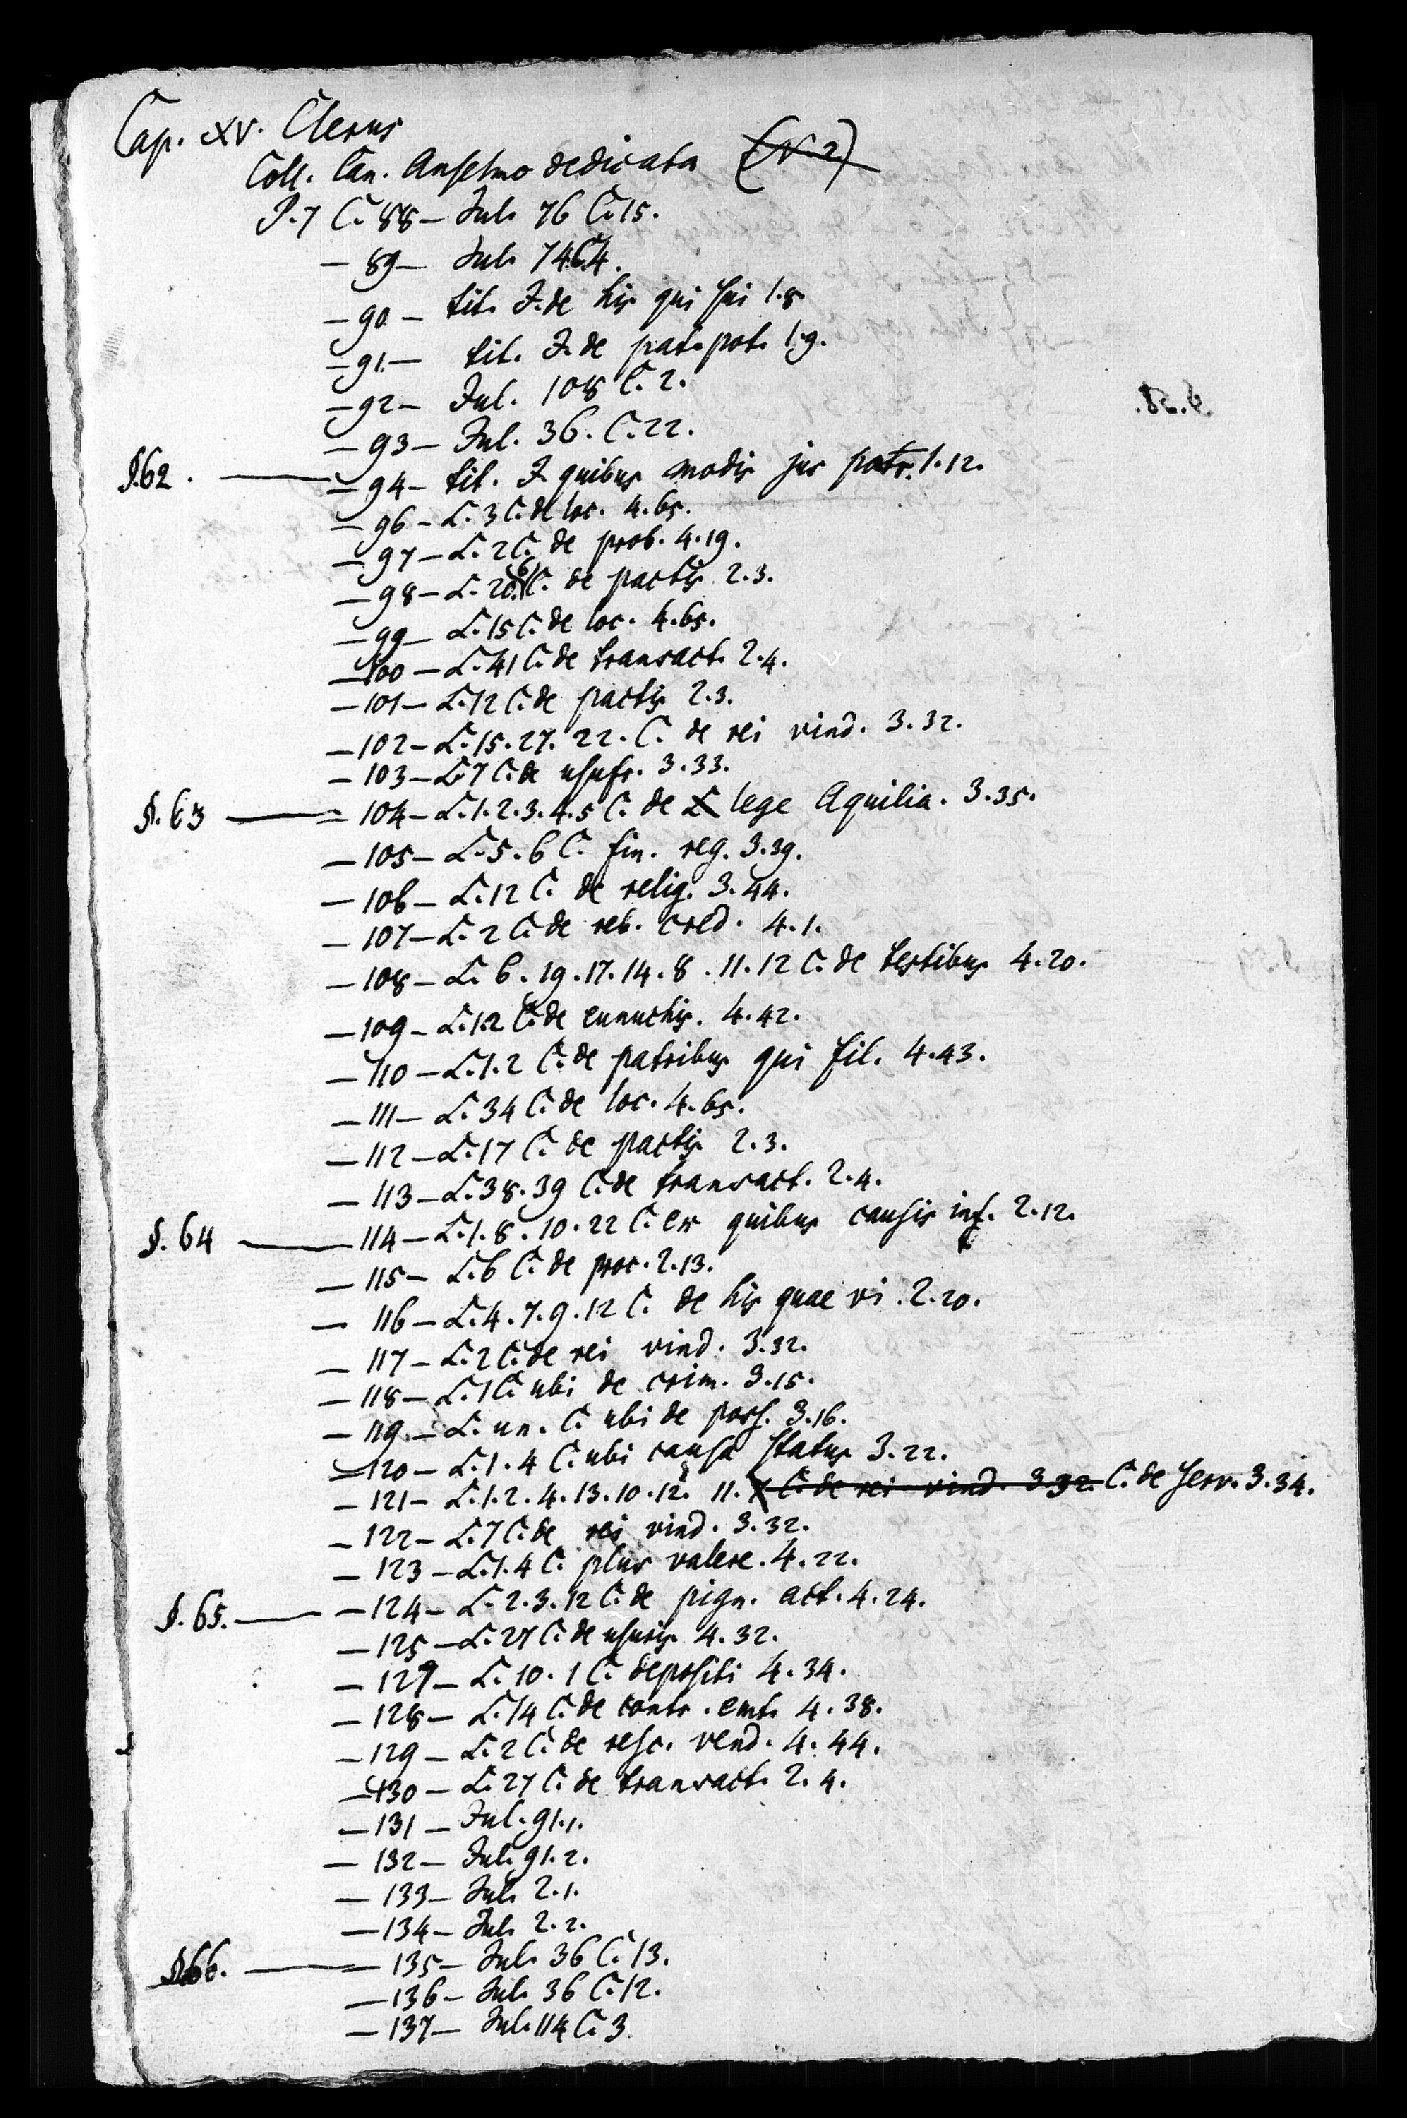 Cap. XV. Clerus
Coll. Can. Anselmo dedicata (N 2)
P. 7 C. 88 — Jul. 76 C. 15.
— 89 — Jul. 74 C. 4.
— 90 — tit. J. de his qui sui 1. 8
— 91 — tit. J. de pat. pot. 1. 9.
— 92 — Jul. 108 C. 2.
— 93 — Jul. 36. C. 22.
§. 62. — 94 — tit. J. quibus modis jus patr. 1. 12.
— 96 — L. 3 C. de loc. 4. 65.
— 97 — L. 2 C. de prob. 4. 19.
— 98 — L. 20. (6) C. de pactis 2. 3.
— 99 — L. 15 C. de loc. 4. 65.
— 100 — L. 41 C. de transact. 2. 4.
— 101 — L. 12 C. de pactis 2. 3.
— 102 — L. 15. 27. 22. C. de rei vind. 3. 32.
— 103 — L. 7 C. de usufr. 3. 33.
§. 63 — 104 — L. 1. 2. 3. 4. 5 C. de L lege Aquilia. 3. 35.
— 105 — L. 5. 6 C. fin. reg. 3. 39.
— 106 — L. 12 C. de relig. 3. 44.
— 107 — L. 2 C. de reb. cred. 4. 1.
— 108 — L. 6. 19. 17. 14. 8. 11. 12 C. de testibus 4. 20.
— 109 — L. 1. 2 C. de eunuchis. 4. 42.
— 110 — L. 1. 2 C. de patribus qui fil. 4. 43.
— 111 — L. 34 C. de loc. 4. 65.
— 112 — L. 17 C. de pactis 2. 3.
— 113 — L. 38. 39 C. de transact. 2. 4.
§. 64 — 114 — L. 1. 8. 10. 22 C. ex quibus causis inf. 2. 12.
— 115 — L. 6 C. de proc. 2. 13.
— 116 — L. 4. 7. 9. 12 C. de his quae vi. 2. 20.
— 117 — L. 2 C. de rei vind. 3. 32.
— 118 — L. 1 C. ubi de crim. 3. 15.
— 119 — L. un. C. ubi de poss. 3. 16.
— 120 — L. 1. 4 C. ubi causa status 3. 22.
— 121 — L. 1. 2. 4. 13. 10. 12. 11. 7 C. de rei vind. 3. 32. C. de serv. 3. 34.
— 122 — L. 7 C. de rei vind. 3. 32.
— 123 — L. 1. 4 C. plus valere. 4. 22.
§. 65. — 124 — L. 2. 3. 12 C. de pign. act. 4. 24.
— 125 — L. 27 C. de usuris 4. 32.
— 127 — L. 10. 1 C. depositi 4. 34.
— 128 — L. 14 C. de contr. emt. 4. 38.
— 129 — L. 2 C. de resc. vend. 4. 44.
— 130 — L. 27 C. de transact. 2. 4.
— 131 — Jul. 91. 1.
— 132 — Jul. 91. 2.
— 133 — Jul. 2. 1.
— 134 — Jul. 2. 2.
§. 66. — 135 — Jul. 36 C. 13.
— 136 — Jul. 36 C. 12.
— 137 — Jul. 114 C. 3.